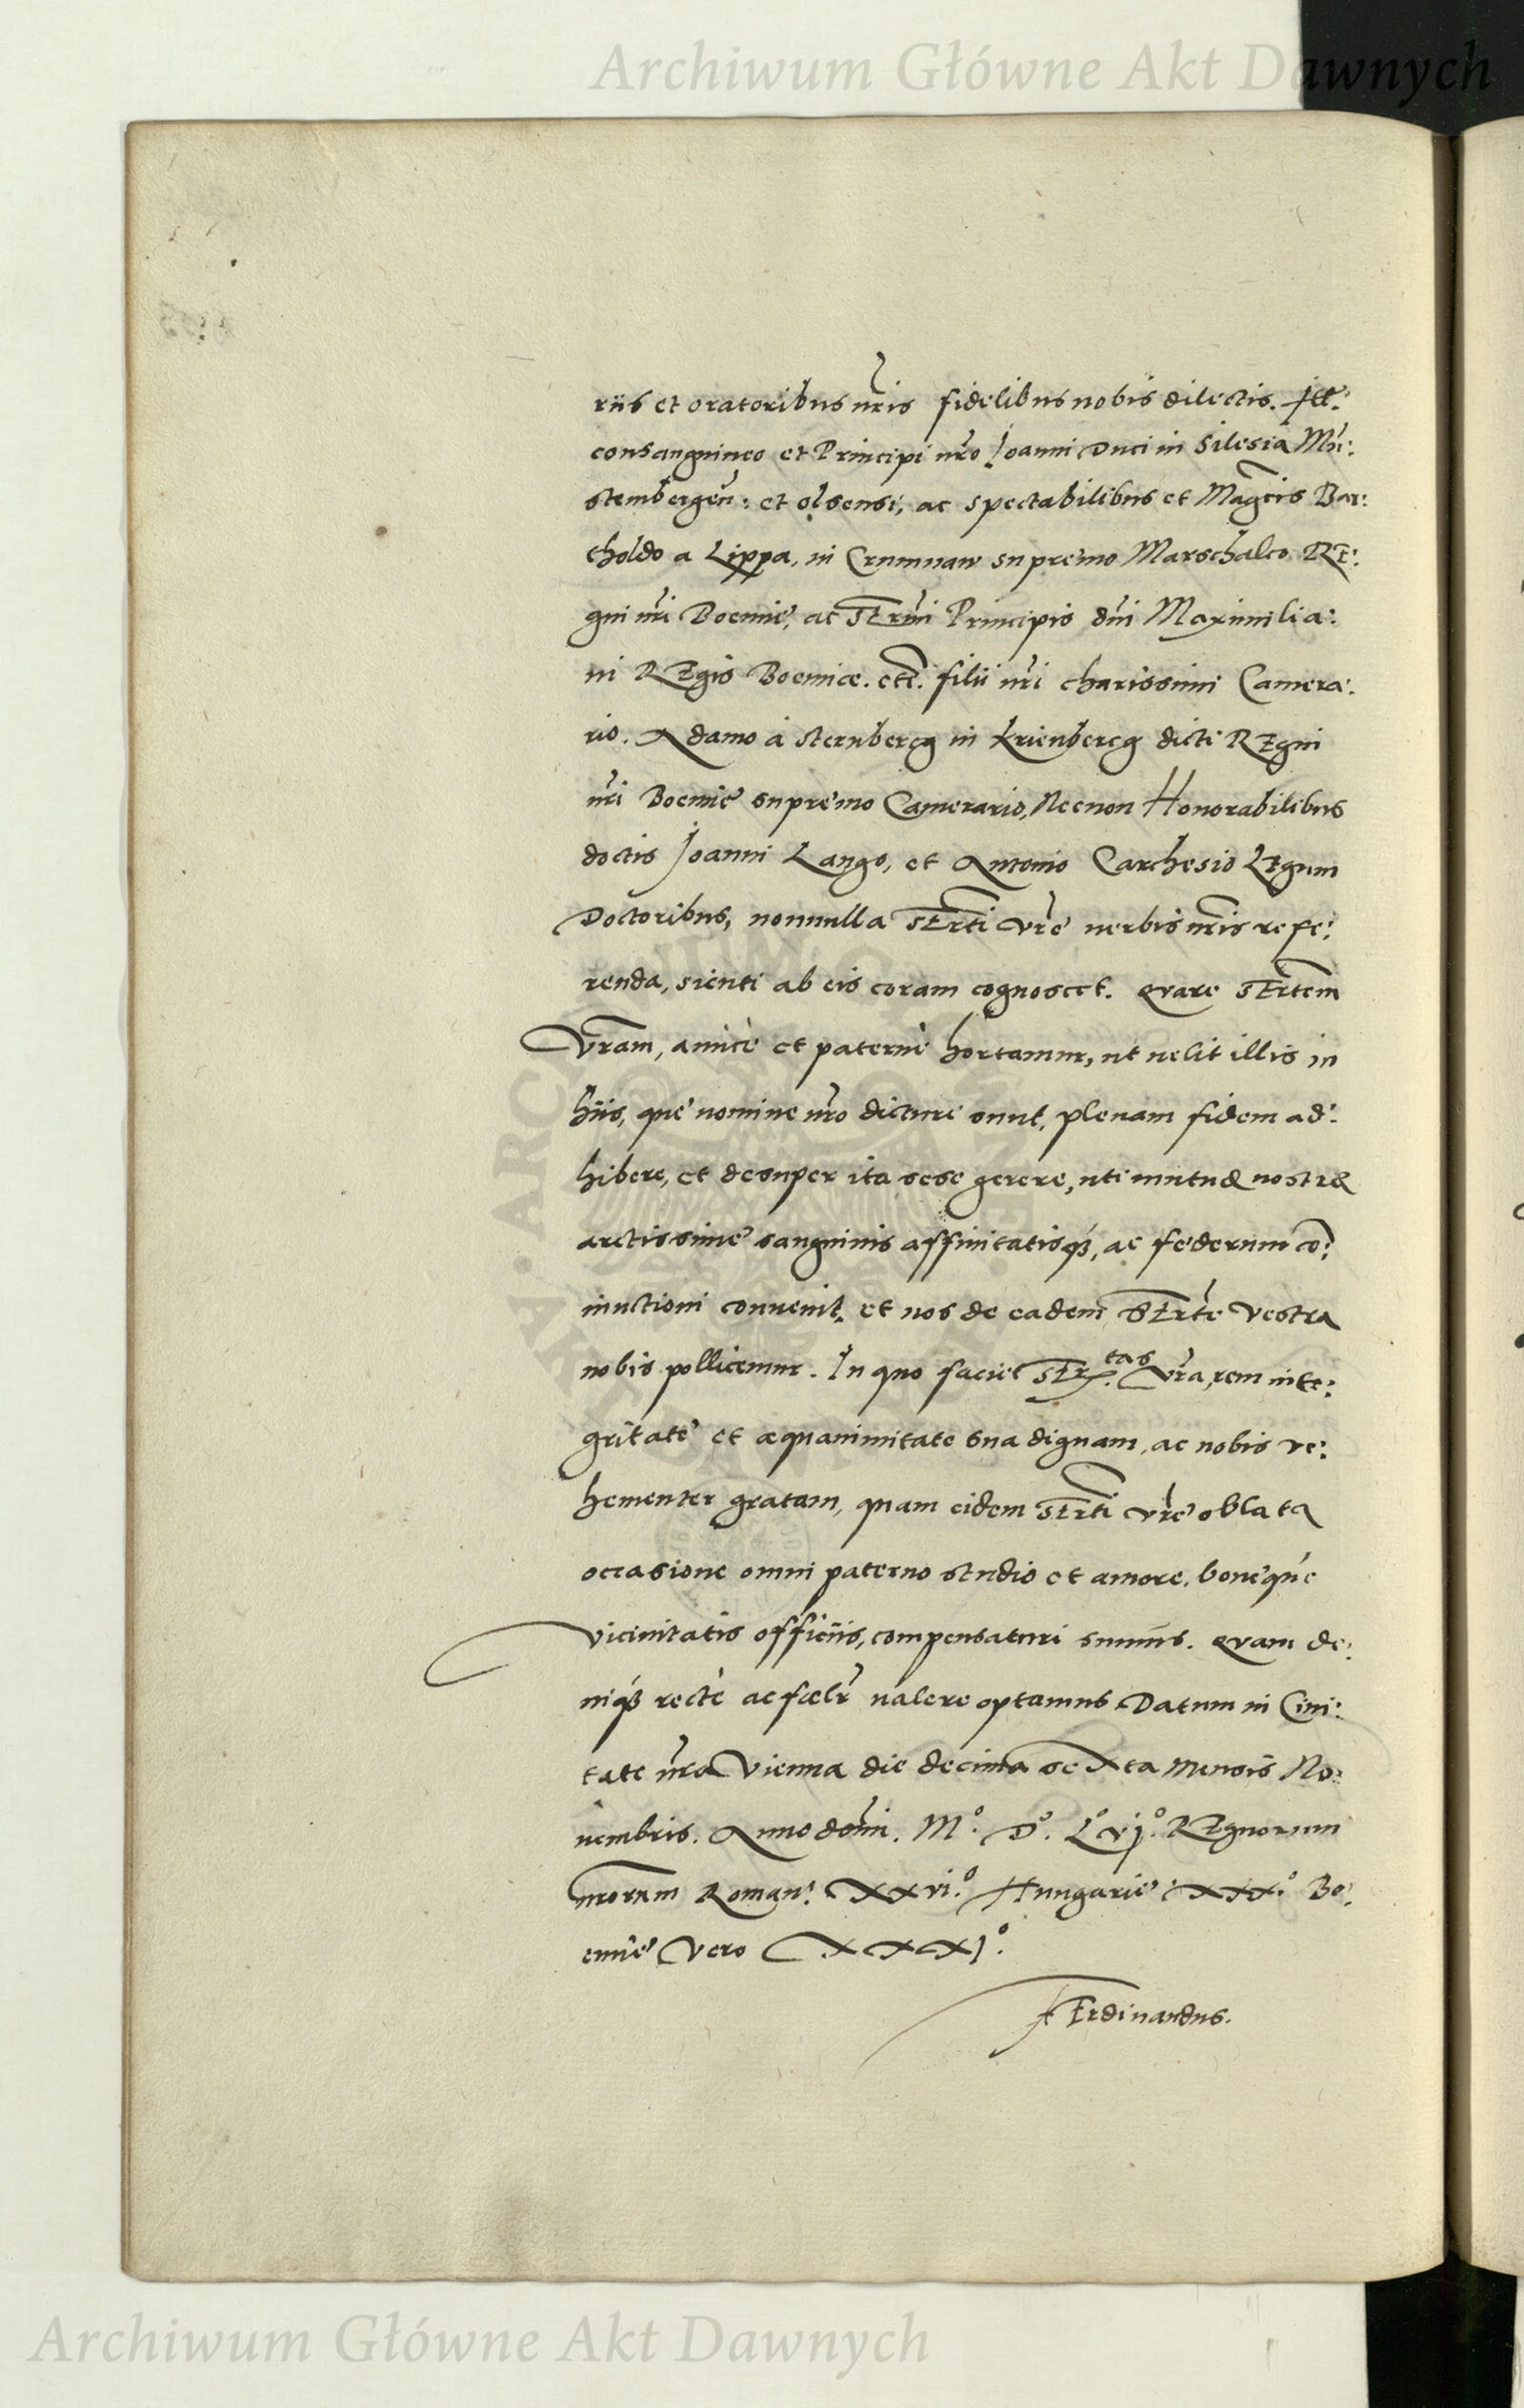 Archiwum Główne Akt Dawnych
riis et oratoribus nr̃is fidelibus nobis dilectis. Ill:
consanguineo et Principi nr̃o Joanni Duci in Silesia Mn̄:
stembergeñ: et olsensi, ac spectabilibus et Mag̃cis Bar:
tholdo a Lippa, in Crumnaw supremo Marschalco RE:
gni nr̃i Boemię, ac SErm̃i Principis dñi Maximilia:
ni REgis Boemiæ. etc̃. filii nr̃i charissimi Camera:
rio. Adamo à Sternbercg in Krienbercg dicti REgni
nr̃i Boemię supremo Camerario, Necnon Honorabilibus
doctis Joanni Lango, et Antonio Carchesio LEgum
Doctoribus, nonnulla SErt̃i vr̃ę verbis nr̃is refe:
renda, sicuti ab eis coram cognoscet. Quare SErtem̃
Vr̃am, amicè et paternè hortamur, ut uelit illis in
hiis, quę nomine nr̃o dicturi sunt, plenam fidem ad:
hibere, et desuper ita sese gerere, uti mutuæ nostræ
arctissimę sanguinis affinitatisq́;, ac fęderum cõ:
iunctioni conuenit, et nos de eadem SErt̃e Vestra
nobis pollicemur. In quo faciet SEr.tas Vr̃a, rem inte:
gritate et æquanimitate sua dignam, ac nobis ve:
hementer gratam, quam eidem SErt̃i vr̃ę oblata
occasione omni paterno studio et amore, bonęqúe
vicinitatis officiis, compensaturi sumus. Quam de:
niq́; rectè ac fœlr̃ ualere optamus Datum in Ciui:
tate nr̃a Vienna die decima sexta Mensis No:
uembris. Anno domĩ. M.º D.º L.º vj.º REgnorum
nr̃orum Roman: XXvi.º Hungarię: XXX.º Bo:
emię Vero XXXj.º
FErdinandus.
Archiwum Główne Akt Dawnych